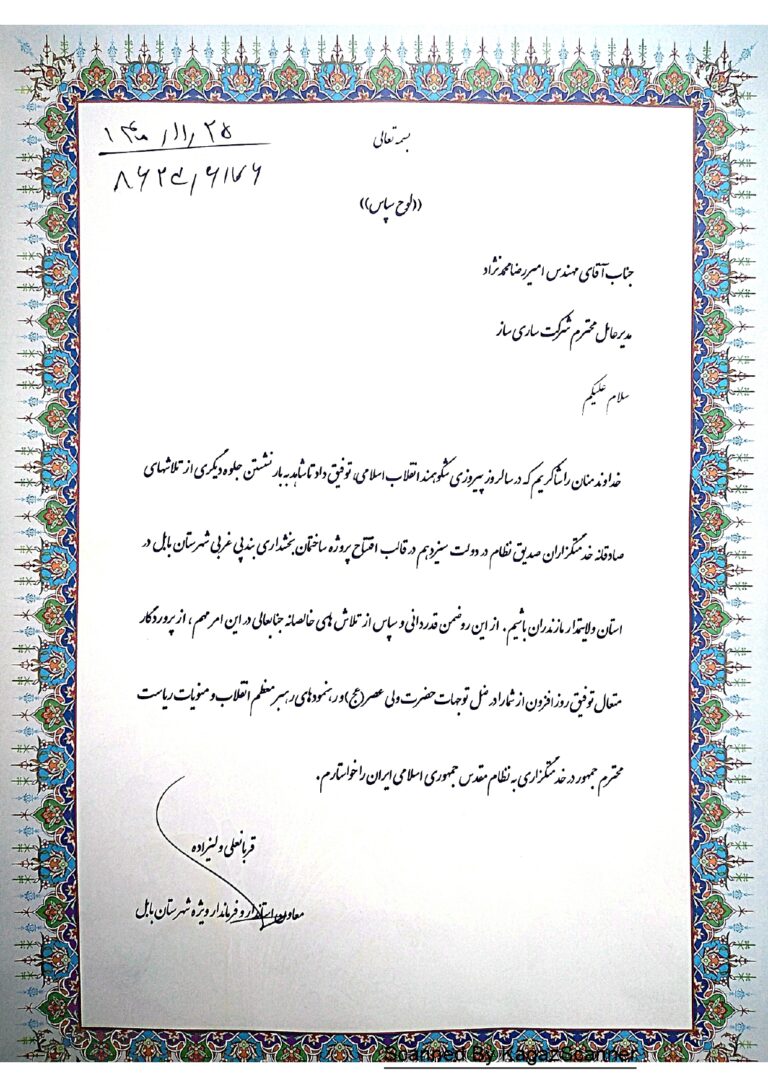 بسمه تعالی
((لوح سپاس))
جناب آقای مهندس امیررضا محمدنژاد
مدیرعامل محترم شرکت ساری ساز
سلام علیکم
خداوند منان را شاکریم که در سالروز پیروزی شکوهمند انقلاب اسلامی، توفیق داد تا شاهد به بار نشستن جلوه دیگری از تلاشهای
صادقانه خدمتگزاران صدیق نظام در دولت سیزدهم در قالب افتتاح پروژه ساختمان بخشداری بندپی غربی شهرستان بابل در
استان ولایتمدار مازندران باشیم. از این رو ضمن قدردانی و سپاس از تلاش های خالصانه جنابعالی در این امر مهم، از پروردگار
متعال توفیق روز افزون از شما را در ظل توجهات حضرت ولی عصر(عج) و رهنمودهای رهبر معظم انقلاب و منویات ریاست
محترم جمهور در خدمتگزاری به نظام مقدس جمهوری اسلامی ایران را خواستارم.
قربانعلی ولیزاده
معاون استاندار و فرماندار ویژه شهرستان بابل
Scanned By KagazScanner